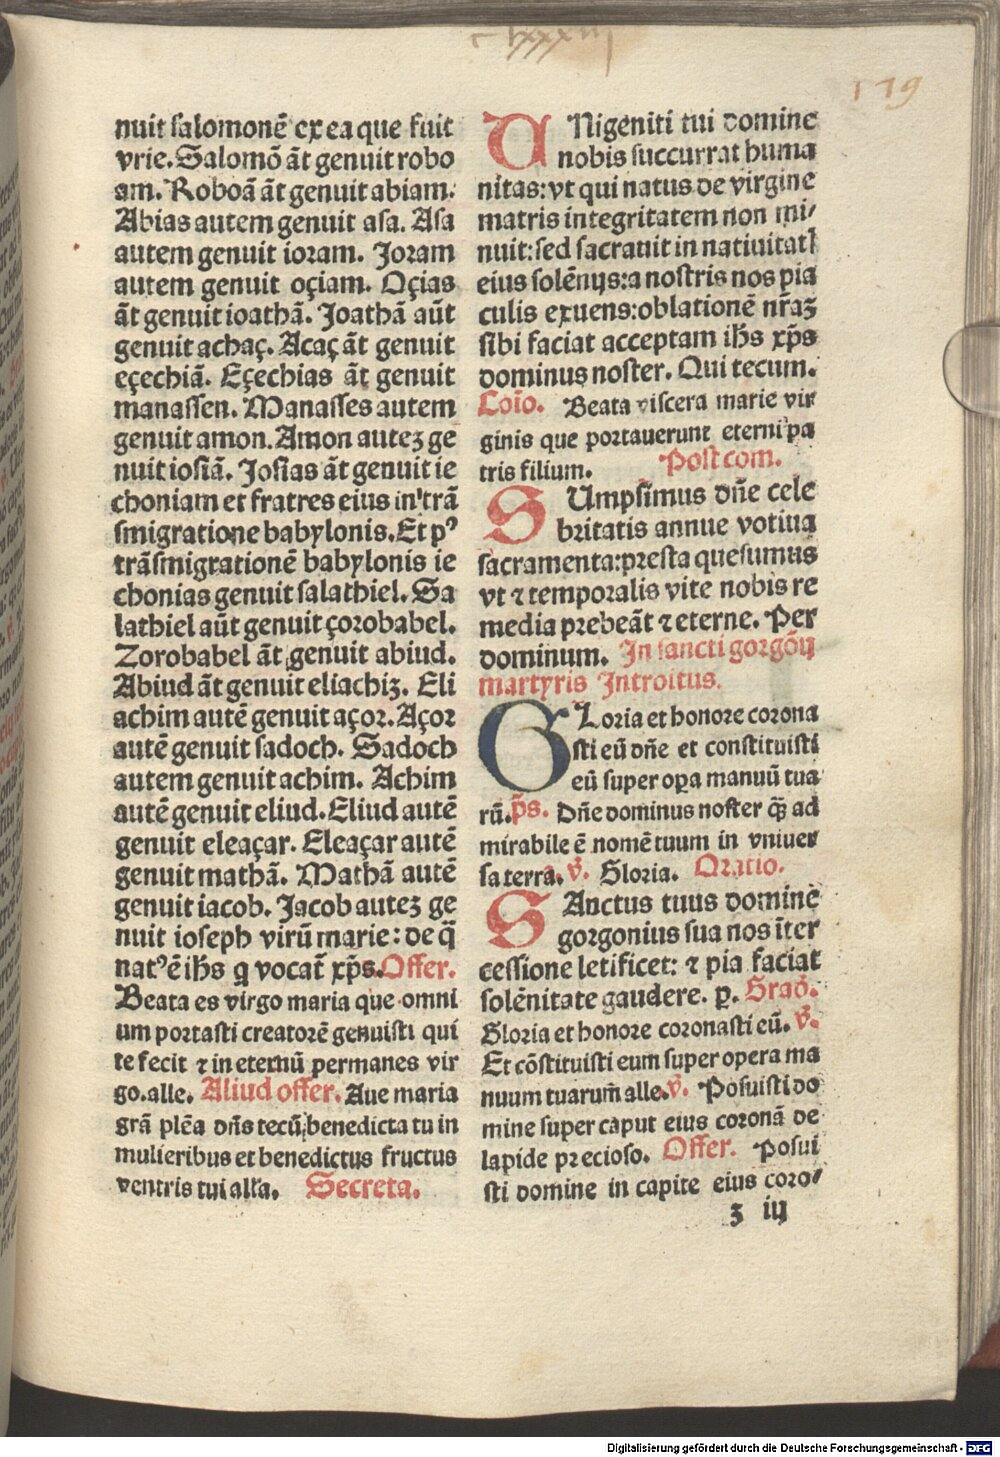 c lxxxiij
119
nuit salomonē ex ea que fuit
vrie. Salomō āt genuit robo
am. Roboā āt genuit abiam.
Abias autem genuit asa. Asa
autem genuit ioram. Joram
autem genuit oçiam. Oçias
āt genuit ioathā. Joathā aūt
genuit achaç. Acaç āt genuit
eçechiā. Eçechias āt genuit
manassen. Manasses autem
genuit amon. Amon auteꝫ ge
nuit iosiā. Josias āt genuit ie
choniam et fratres eius in trā
smigratione babylonis. Et pꝰ
trāsmigrationē babylonis ie
chonias genuit salathiel. Sa
lathiel aūt genuit çorobabel.
Zorobabel āt genuit abiud.
Abiud āt genuit eliachiꝫ. Eli
achim autē genuit açor. Açor
autē genuit sadoch. Sadoch
autem genuit achim. Achim
autē genuit eliud. Eliud autē
genuit eleaçar. Eleaçar autē
genuit mathā. Mathā autē
genuit iacob. Jacob auteꝫ ge
nuit ioseph virū marie: de q̄
natꝰ ē ihs̄ q vocat̄ xp̄s. Offer.
Beata es virgo maria que omni
um portasti creatorē genuisti qui
te fecit ⁊ in eternū permanes vir
go. alle. Aliud offer. Aue maria
grā plēa dn̄s tecū, benedicta tu in
mulieribus et benedictus fructus
ventris tui all'a. Secreta.
UNigeniti tui domine
nobis succurrat huma
nitas: vt qui natus de virgine
matris integritatem non mi/
nuit: sed sacrauit in natiuitati
eius solēnijs: a nostris nos pia
culis exuens: oblationē nr̄aꝫ
sibi faciat acceptam ihs̄ xp̄s
dominus noster. Qui tecum.
Coīo. Beata viscera marie vir
ginis que portauerunt eterni pa
tris filium. Post com.
SUmpsimus dn̄e cele
britatis annue votiua
sacramenta: presta quesumus
vt ⁊ temporalis vite nobis re
media prebeāt ⁊ eterne. Per
dominum. In sancti gorgōij
martyris Introitus.
GLoria et honore corona
sti eū dn̄e et constituisti
eū super opa manuū tua
rū. ps̄. Dn̄e dominus noster q̄ꝫ ad
mirabile ē nomē tuum in vniuer
sa terra. v̄. Gloria. Oratio.
SAnctus tuus dominē
gorgonius sua nos īter
cessione letificet: ⁊ pia faciat
solēnitate gaudere. p. Grad̄.
Gloria et honore coronasti eū. v̄.
Et cōstituisti eum super opera ma
nuum tuarum̄ alle. v̄. Posuisti do
mine super caput eius coronā de
lapide precioso. Offer. Posui
sti domine in capite eius coro/
ꝫ iij
Digitalisierung gefördert durch die Deutsche Forschungsgemeinschaft - DFG